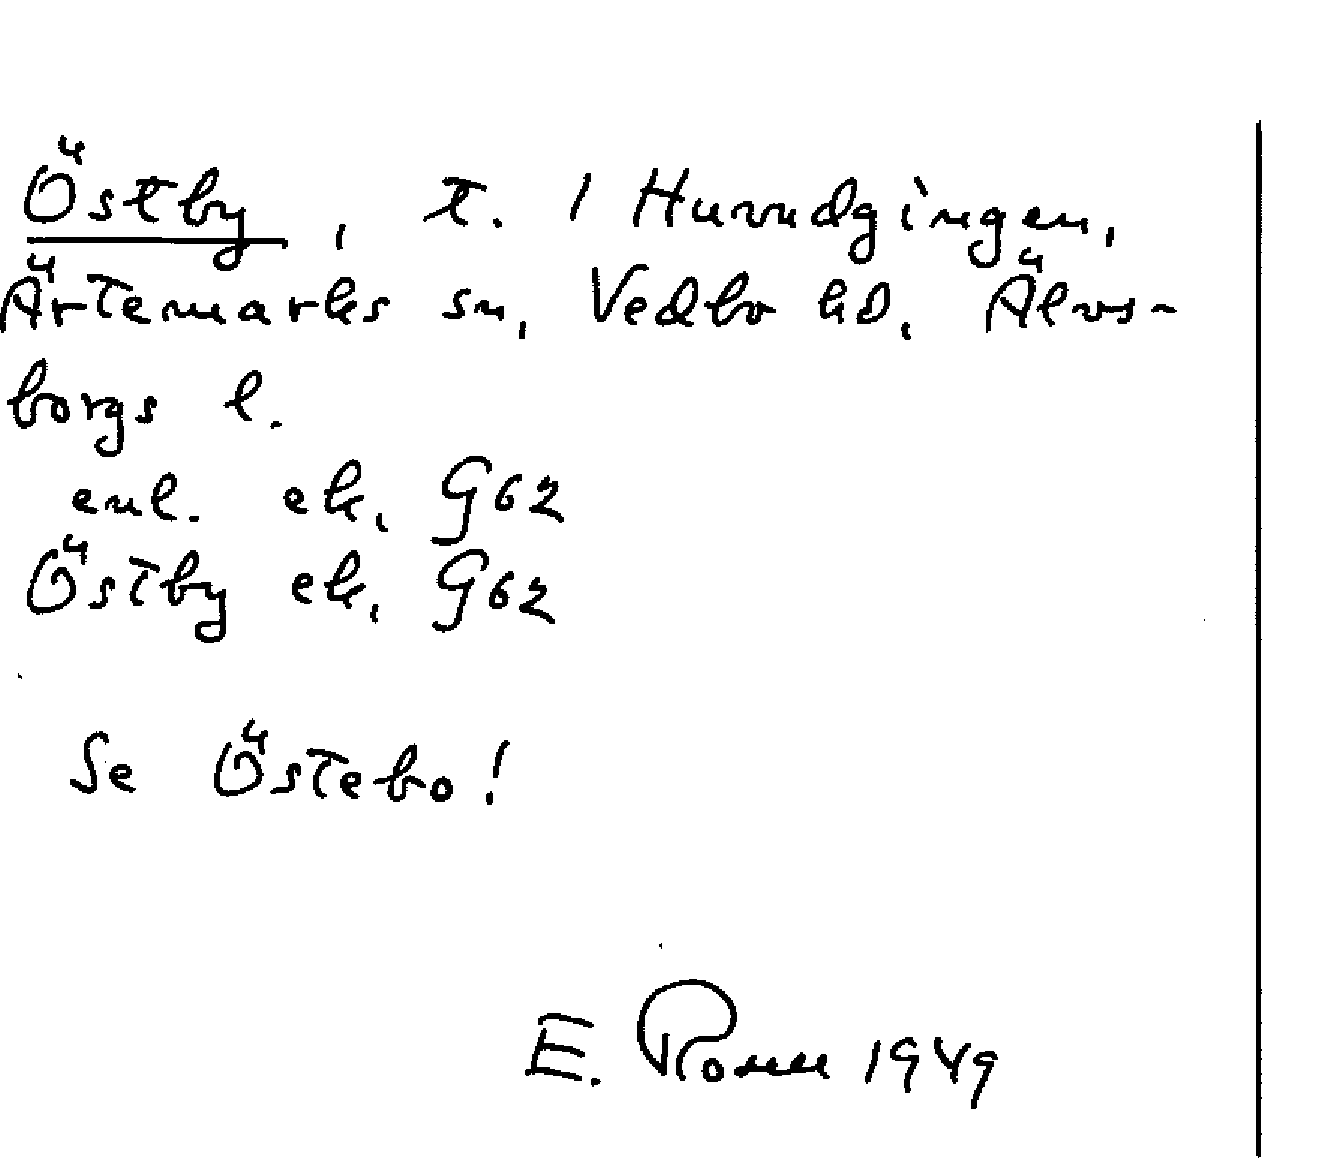 Östby, t. / Huvudgingen,
Ärtemarks sn, Vedbo hd, Älvs-
borgs l.
enl. ek, G62
Östby ek, G62
Se Östebo!
E. Rosell 1949